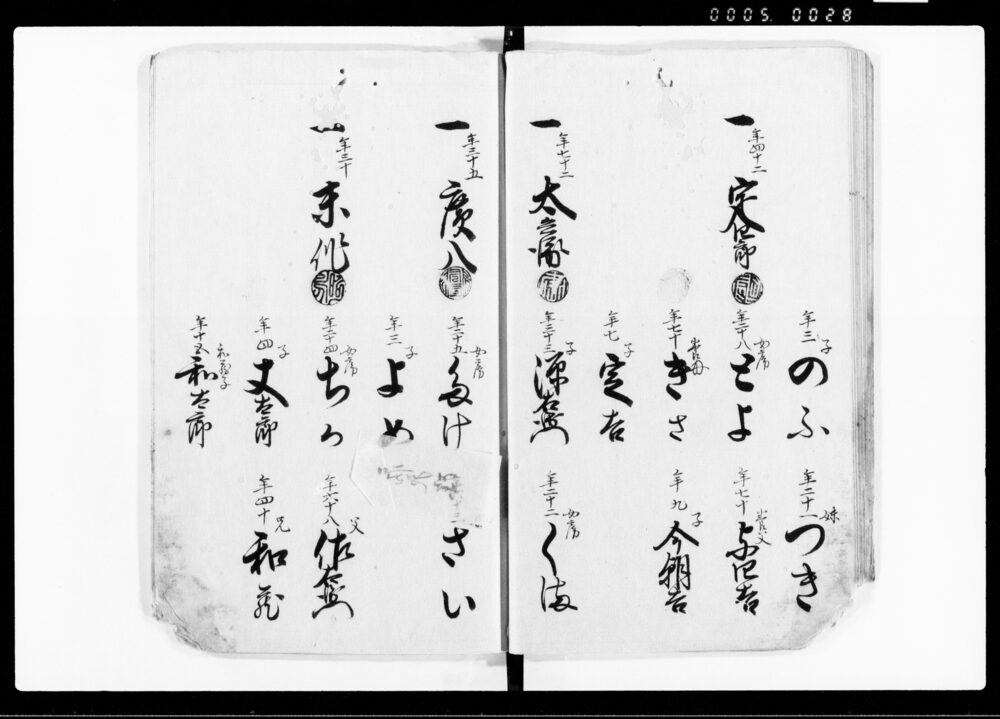 0005 0028
年三 子 のふ
年二十一 妹 つき
一 年四十二
年三十八 女房 とよ
年七十 与四吉
年七十 きさ
年九 子 今朝吉
年七 子 定吉
一 年七十二 太兵衛
年三十三 子 源右衛門
年二十二 女房 くま
一 年三十五 廣八
年二十五 女房 たけ
さい
年三 子 よめ
一 年三十 末作
年二十四 女房 ちか
年六十八 父 佐右衛門
年四 子 丈太郎
年四十 兄 和蔵
年十五 和蔵子 和太郎